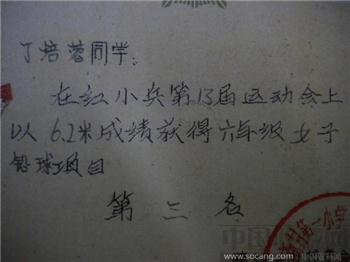 丁培蓉同学：
在红小兵第13届运动会上
以6.2米成绩获得六年级女子
铅球项目
第三名
村第一小学
www.socang.com